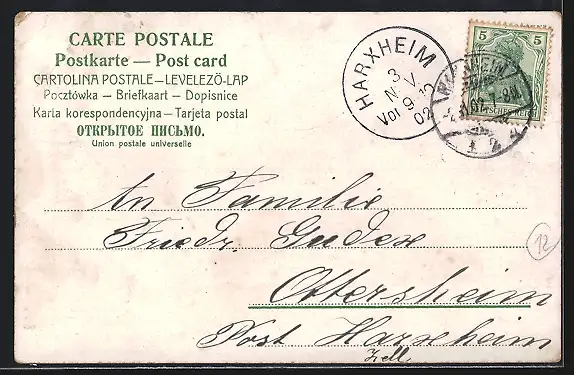 CARTE POSTALE
Postkarte — Post card
CARTOLINA POSTALE — LEVELEZÖ-LAP
Pocztówka — Briefkaart — Dopisnice
Karta korespondencyjna — Tarjeta postal
ОТКРЫТОЕ ПИСЬМО.
Union postale universelle
HARXHEIM
3
NOV
Vor 9-
02
5 5
An Familie
Friedr. Gudex
Ottersheim
Post Harxheim
Zell
12